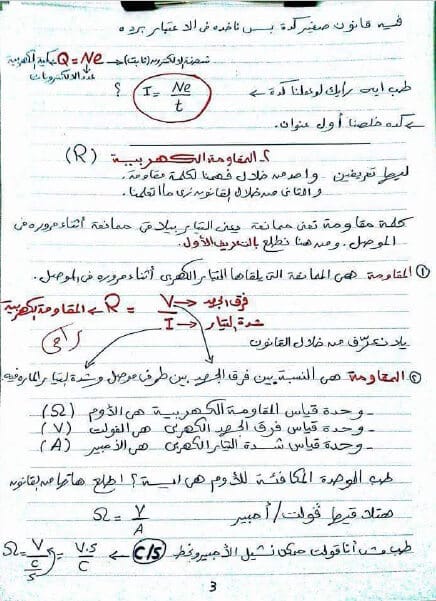 فيه قانون صغير كدة بس ناخده فى الاعتبار برده
شحنة الالكترون (ثابتة) ← Q = Ne → كمية الكهربية
عدد الالكترونات
طب ايه رأيك لو عملنا كدة ← I = Ne/t ؟
← كده خلصنا أول عنوان.
٢- المقاومة الكهربيية (R)
ليها تعريفين واحد من خلال فهمنا لكلمة مقاومة.
والثانى من خلال القانون زى ما اتعلمنا.
كلمة مقاومة تعنى ممانعة يعنى التيار بيلاقى ممانعة أثناء مروره فى
الموصل. ومن هنا نطلع بالتعريف الأول.
① المقاومة هى الممانعة التى يلقاها التيار الكهربى أثناء مروره فى الموصل.
المقاومة الكهربية ← R = V/I
V → فرق الجهد
I → شدة التيار
يلا نعرّف من خلال القانون
② المقاومة هى النسبة بين فرق الجهد بين طرفى موصل وشدة التيار المار فيه
- وحدة قياس المقاومة الكهربيية هى الأوم (Ω)
- وحدة قياس فرق الجهد الكهربى هى الفولت (V)
- وحدة قياس شدة التيار الكهربى هى الأمبير (A)
طب الوحدة المكافئة للأوم هى ايه؟ اطلع هاتها من القانون
هتلاقيها ڤولت/أمبير Ω = V/A
طب مش أنا قولت ممكن نشيل الأمبير ونحط ← C/S Ω = V/(C/S) = V.S/C
3